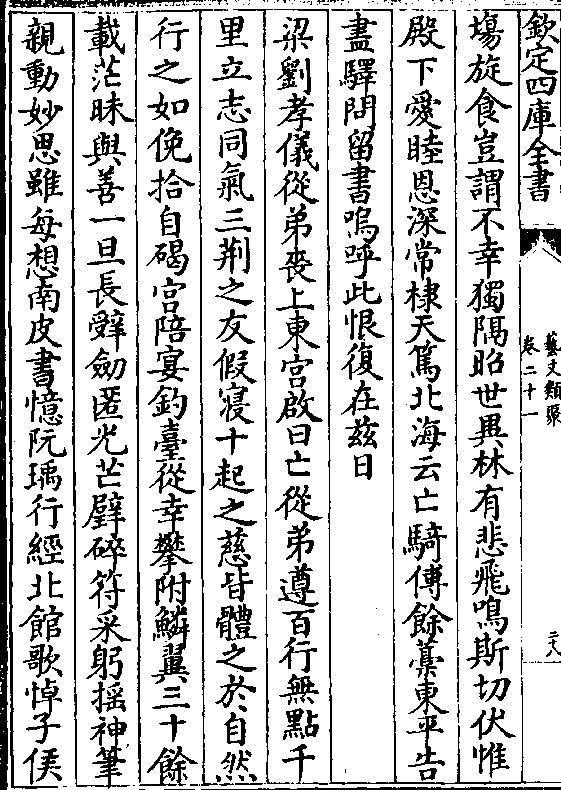 欽定四庫全書
藝文類聚
卷二十一
二八
塲旋食豈謂不幸獨隔昭世異林有悲飛鳴斯切伏惟
殿下愛睦恩深常棣天篤北海云亡騎傳餘藁東平告
盡驛問留書嗚呼此恨復在兹日
梁劉孝儀從弟喪上東宫啟曰亡從弟遵百行無點千
里立志同氣三荆之友假寝十起之慈皆體之於自然
行之如俛拾自碣宫陪宴釣臺從幸攀附鱗翼三十餘
載茫昧與善一旦長辭劒匿光芒璧碎符采躬揺神筆
親動妙思雖每想南皮書憶阮瑀行經北館歌悼子侯